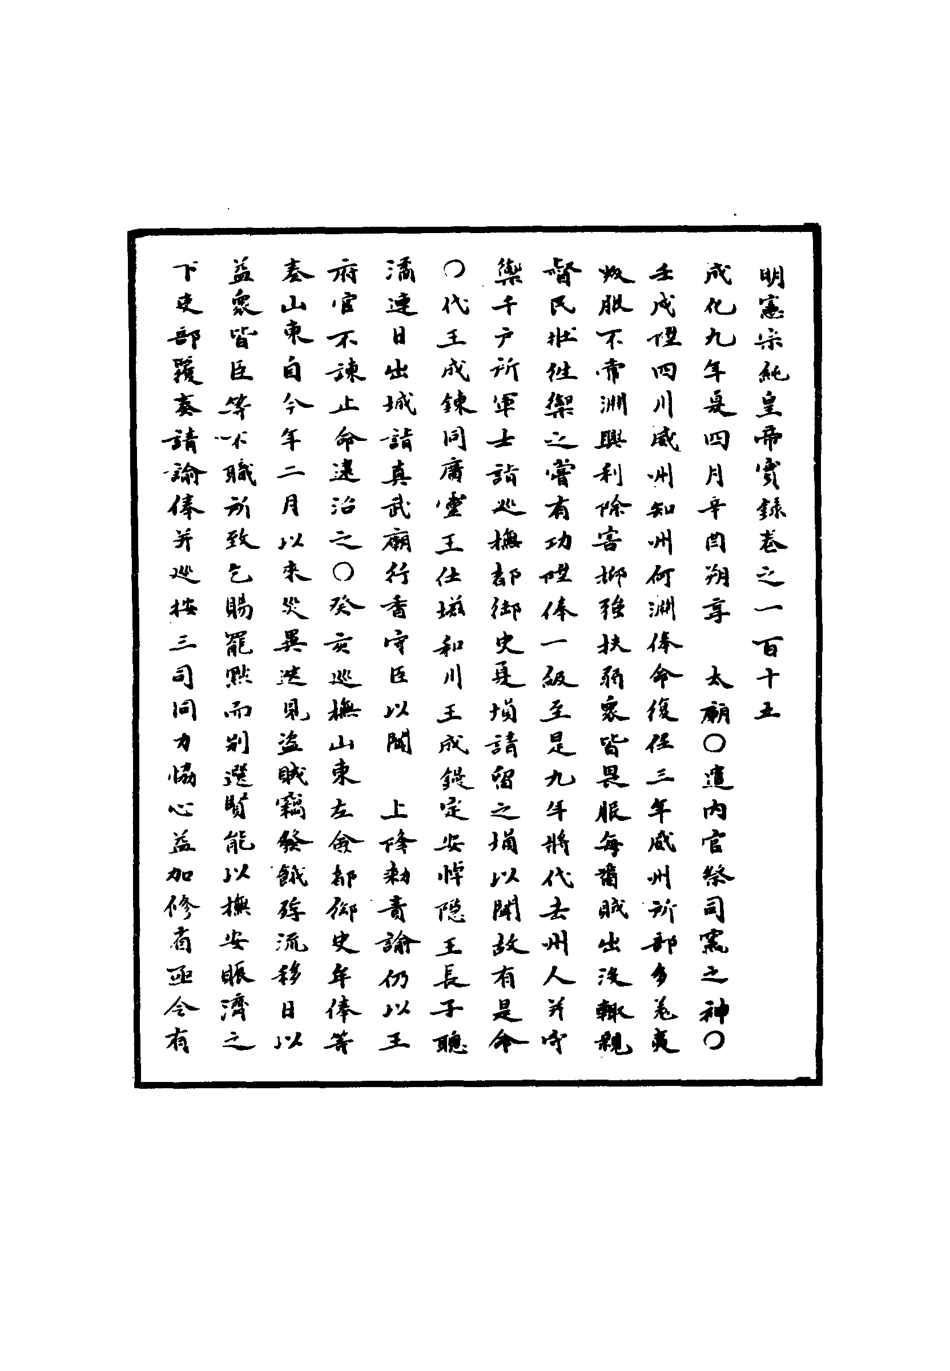 明憲宗純皇帝實錄卷之一百十五
成化九年夏四月辛酉朔享　太廟○遣內官祭司竈之神○
壬戌陞四川威州知州何淵俸命復任三年威州所部多羌夷
叛服不常淵興利除害抑強扶弱眾皆畏服每番賊出沒輒親
督民壯徃禦之嘗有功陞俸一級至是九年將代去州人并守
禦千戶所軍士詣巡撫都御史夏塤請留之塤以聞故有是命
○代王成鍊同廣靈王仕㙺和川王成鍉定安悼隱王長子聰
潏連日出城詣真武廟行香守臣以聞　上降勅責諭仍以王
府官不諫止命逮治之○癸亥巡撫山東左僉都御史牟俸等
奏山東自今年二月以來災異迭見盜賊竊發餓殍流移日以
益眾皆臣等不職所致乞賜罷黜而別選賢能以撫安賑濟之
下吏部覆奏請諭俸并巡按三司同力恊心益加修省亟令有